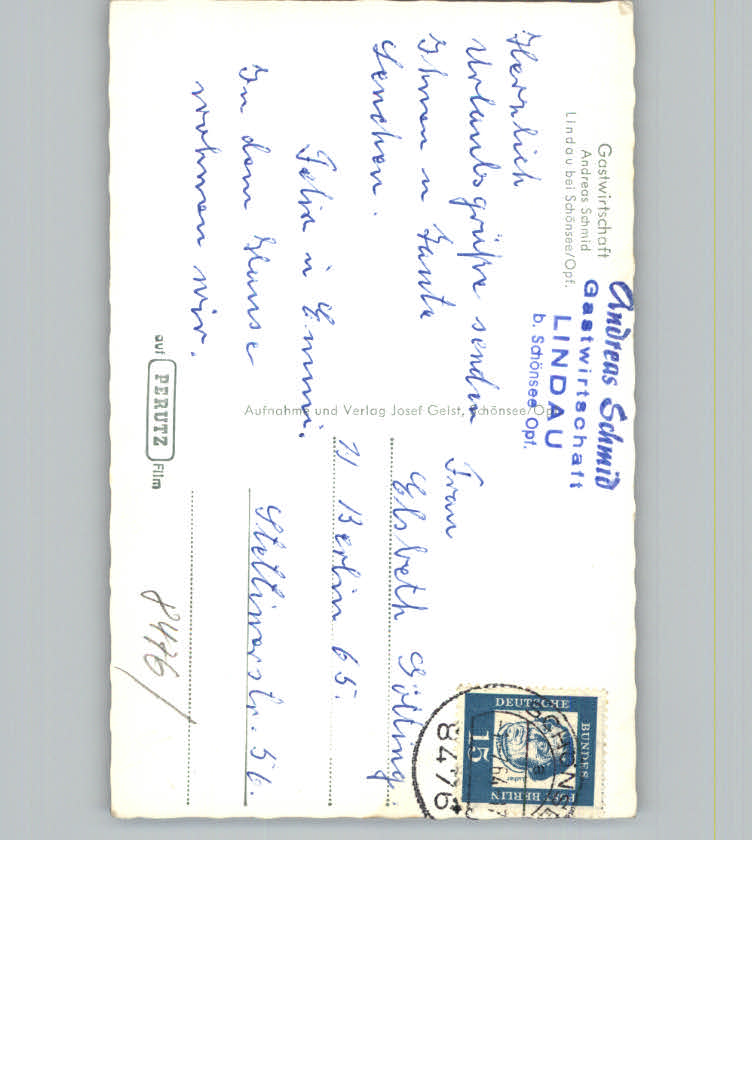 Gastwirtschaft
Andreas Schmid
Lindau bei Schönsee/Opf.
Andreas Schmid
Gastwirtschaft
LINDAU
b. Schönsee Opf.
Herzlich
Urlaubsgrüße senden
Ihnen u Tante
Lenchen.
Felix u Emmi.
In dem Hause
wohnen wir.
Aufnahme und Verlag Josef Geist, Schönsee/Opf.
auf PERUTZ Film
Frau
Elsbeth Gölling.
1 Berlin 65.
Stettinerstr. 56.
8476/
DEUTSCHE
BUNDES
POST BERLIN
15
Luther
SCHÖNSEE
8476